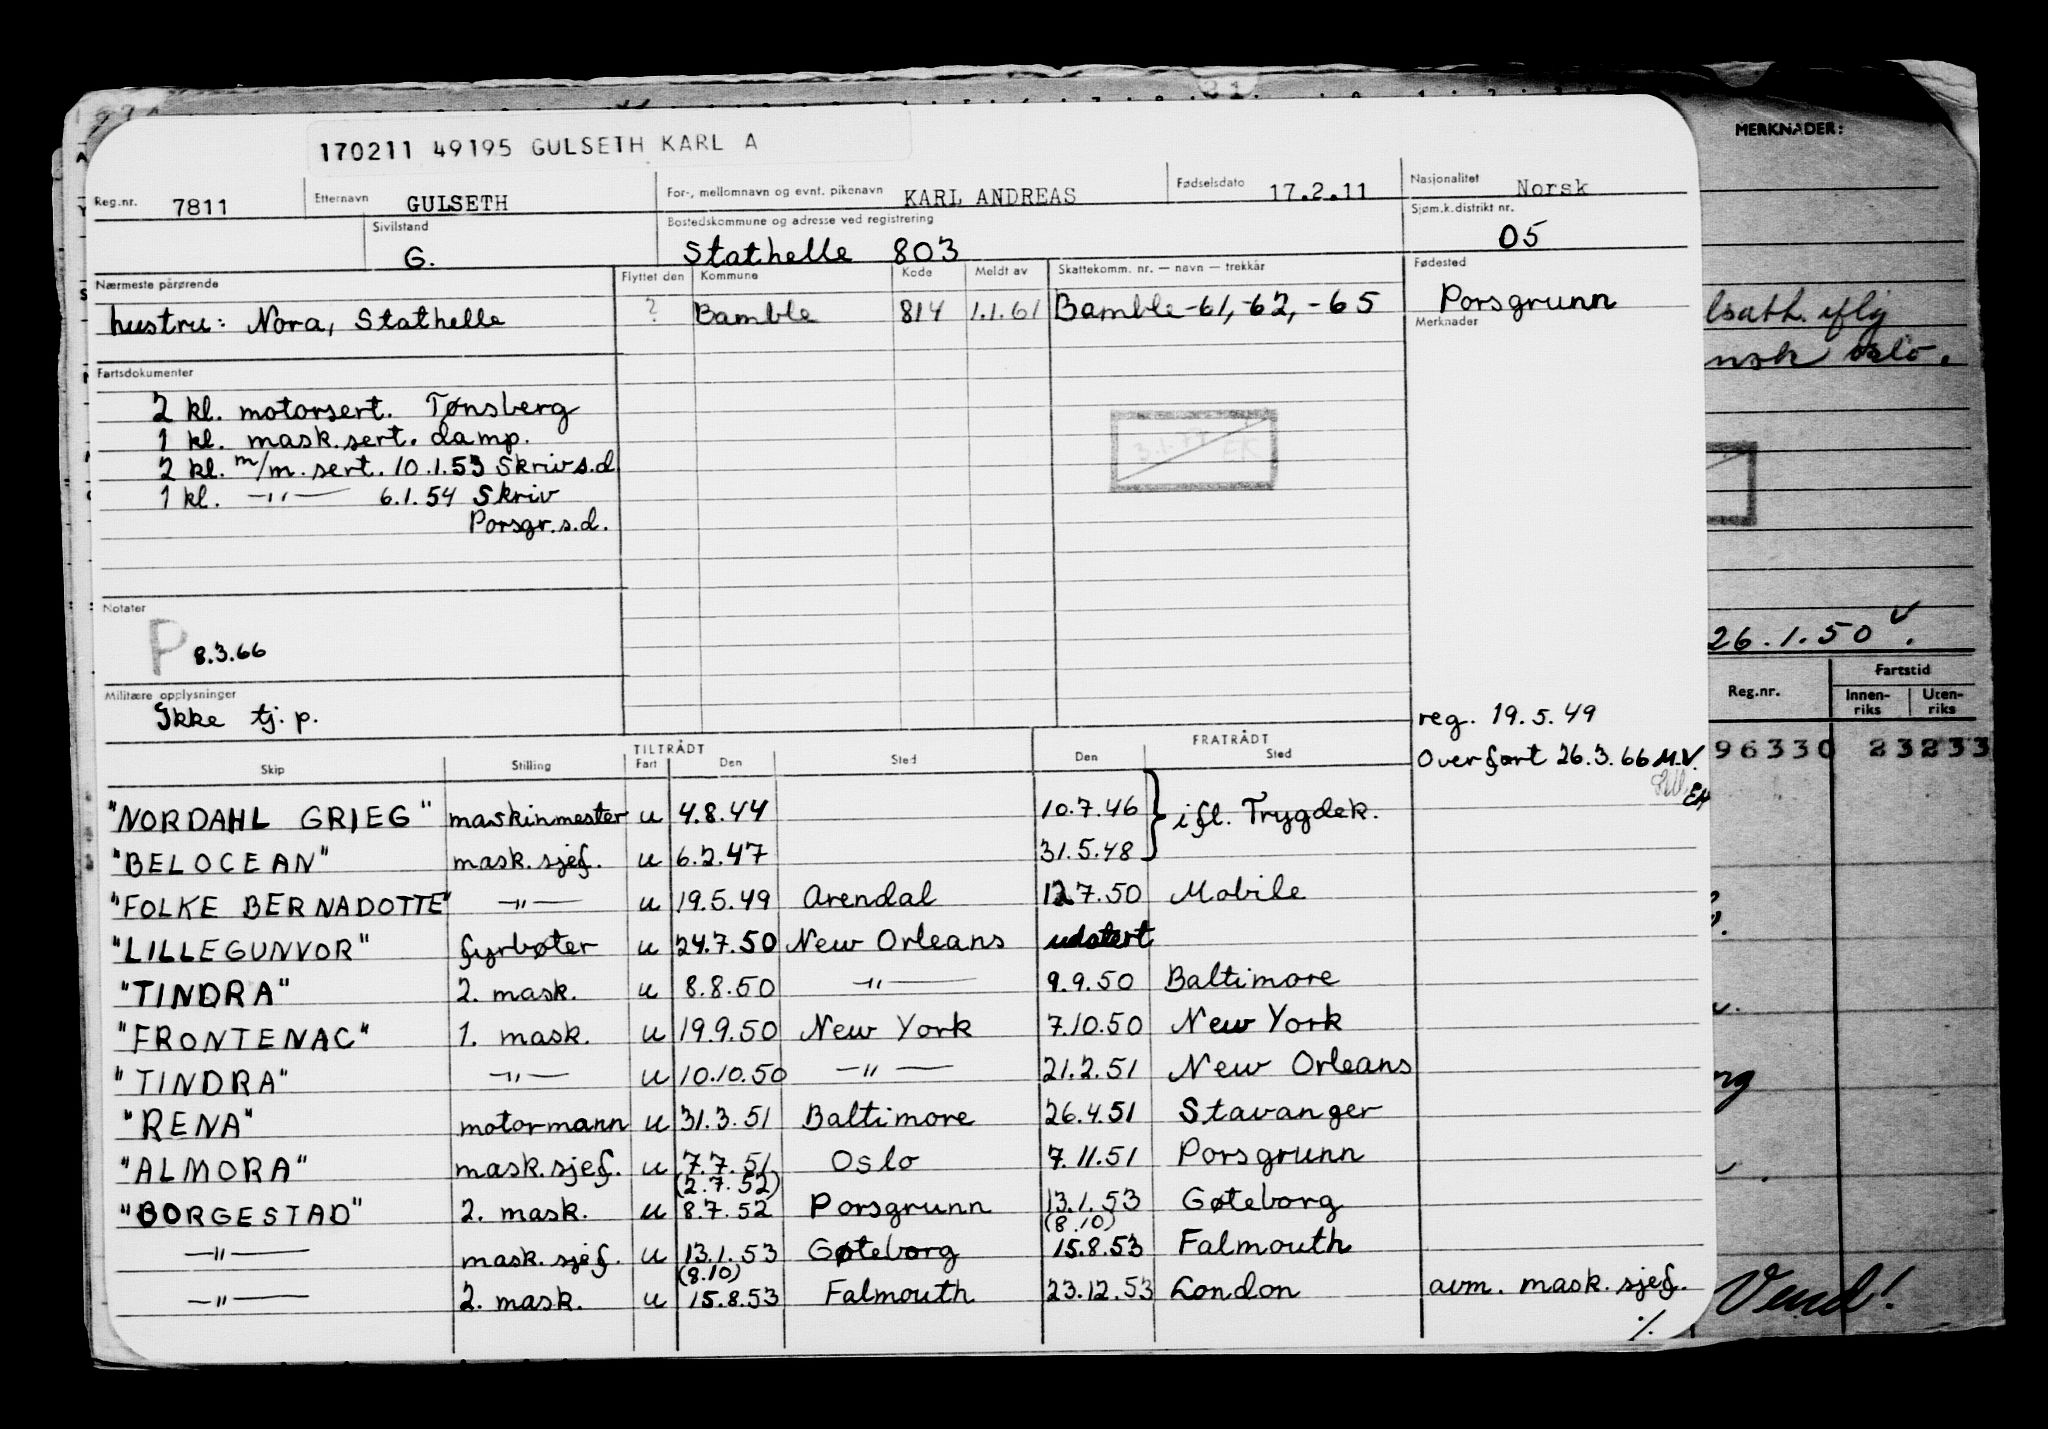 170211 49195 GULSETH KARL A
MERKNADER:
Reg.nr. 7811 Etternavn GULSETH For-, mellomnavn og evnt. pikenavn KARL ANDREAS Fødselsdato 17.2.11 Nasjonalitet Norsk
Sivilstand G. Bostedskommune og adresse ved registrering Stathelle 803 Sjøm.k.distrikt nr. 05
Nærmeste pårørende Flyttet den Kommune Kode Meldt av Skattekomm. nr. — navn — trekkår Fødested
hustru: Nora, Stathelle ? Bamble 814 1.1.61 Bamble -61, -62, -65 Porsgrunn
Merknader
Fartsdokumenter
2 kl. motorsert. Tønsberg
1 kl. mask.sert. damp.
2 kl. m/m. sert. 10.1.53 Skriv s.d
1 kl. —"— 6.1.54 Skriv
Porsgr. s.d.
Notater
P 8.3.66
26.1.50
Militære opplysninger
Ikke tj. p.
reg. 19.5.49
Overført 26.3.66 M.V.
EH
Reg.nr. Fartstid
Innen-riks Uten-riks
96330 23233
TILTRÅDT FRATRÅDT
Skip Stilling Fart Den Sted Den Sted
"NORDAHL GRIEG" maskinmester u 4.8.44 10.7.46 } ifl. Trygdek.
"BELOCEAN" mask.sjef. u 6.2.47 31.5.48
"FOLKE BERNADOTTE" —"— u 19.5.49 Arendal 12.7.50 Mobile
"LILLEGUNVOR" fyrbøter u 24.7.50 New Orleans udatert
"TINDRA" 2. mask. u 8.8.50 —"— 9.9.50 Baltimore
"FRONTENAC" 1. mask. u 19.9.50 New York 7.10.50 New York
"TINDRA" —"— u 10.10.50 —"— 21.2.51 New Orleans
"RENA" motormann u 31.3.51 Baltimore 26.4.51 Stavanger
"ALMORA" mask.sjef. u 7.7.51 Oslo 7.11.51 Porsgrunn
(2.7.52)
"BORGESTAD" 2. mask. u 8.7.52 Porsgrunn 13.1.53 Gøteborg
(8.10)
—"— mask.sjef. u 13.1.53 Gøteborg 15.8.53 Falmouth
(8.10)
—"— 2. mask. u 15.8.53 Falmouth 23.12.53 London avm. mask.sjef.
Vend!
./.